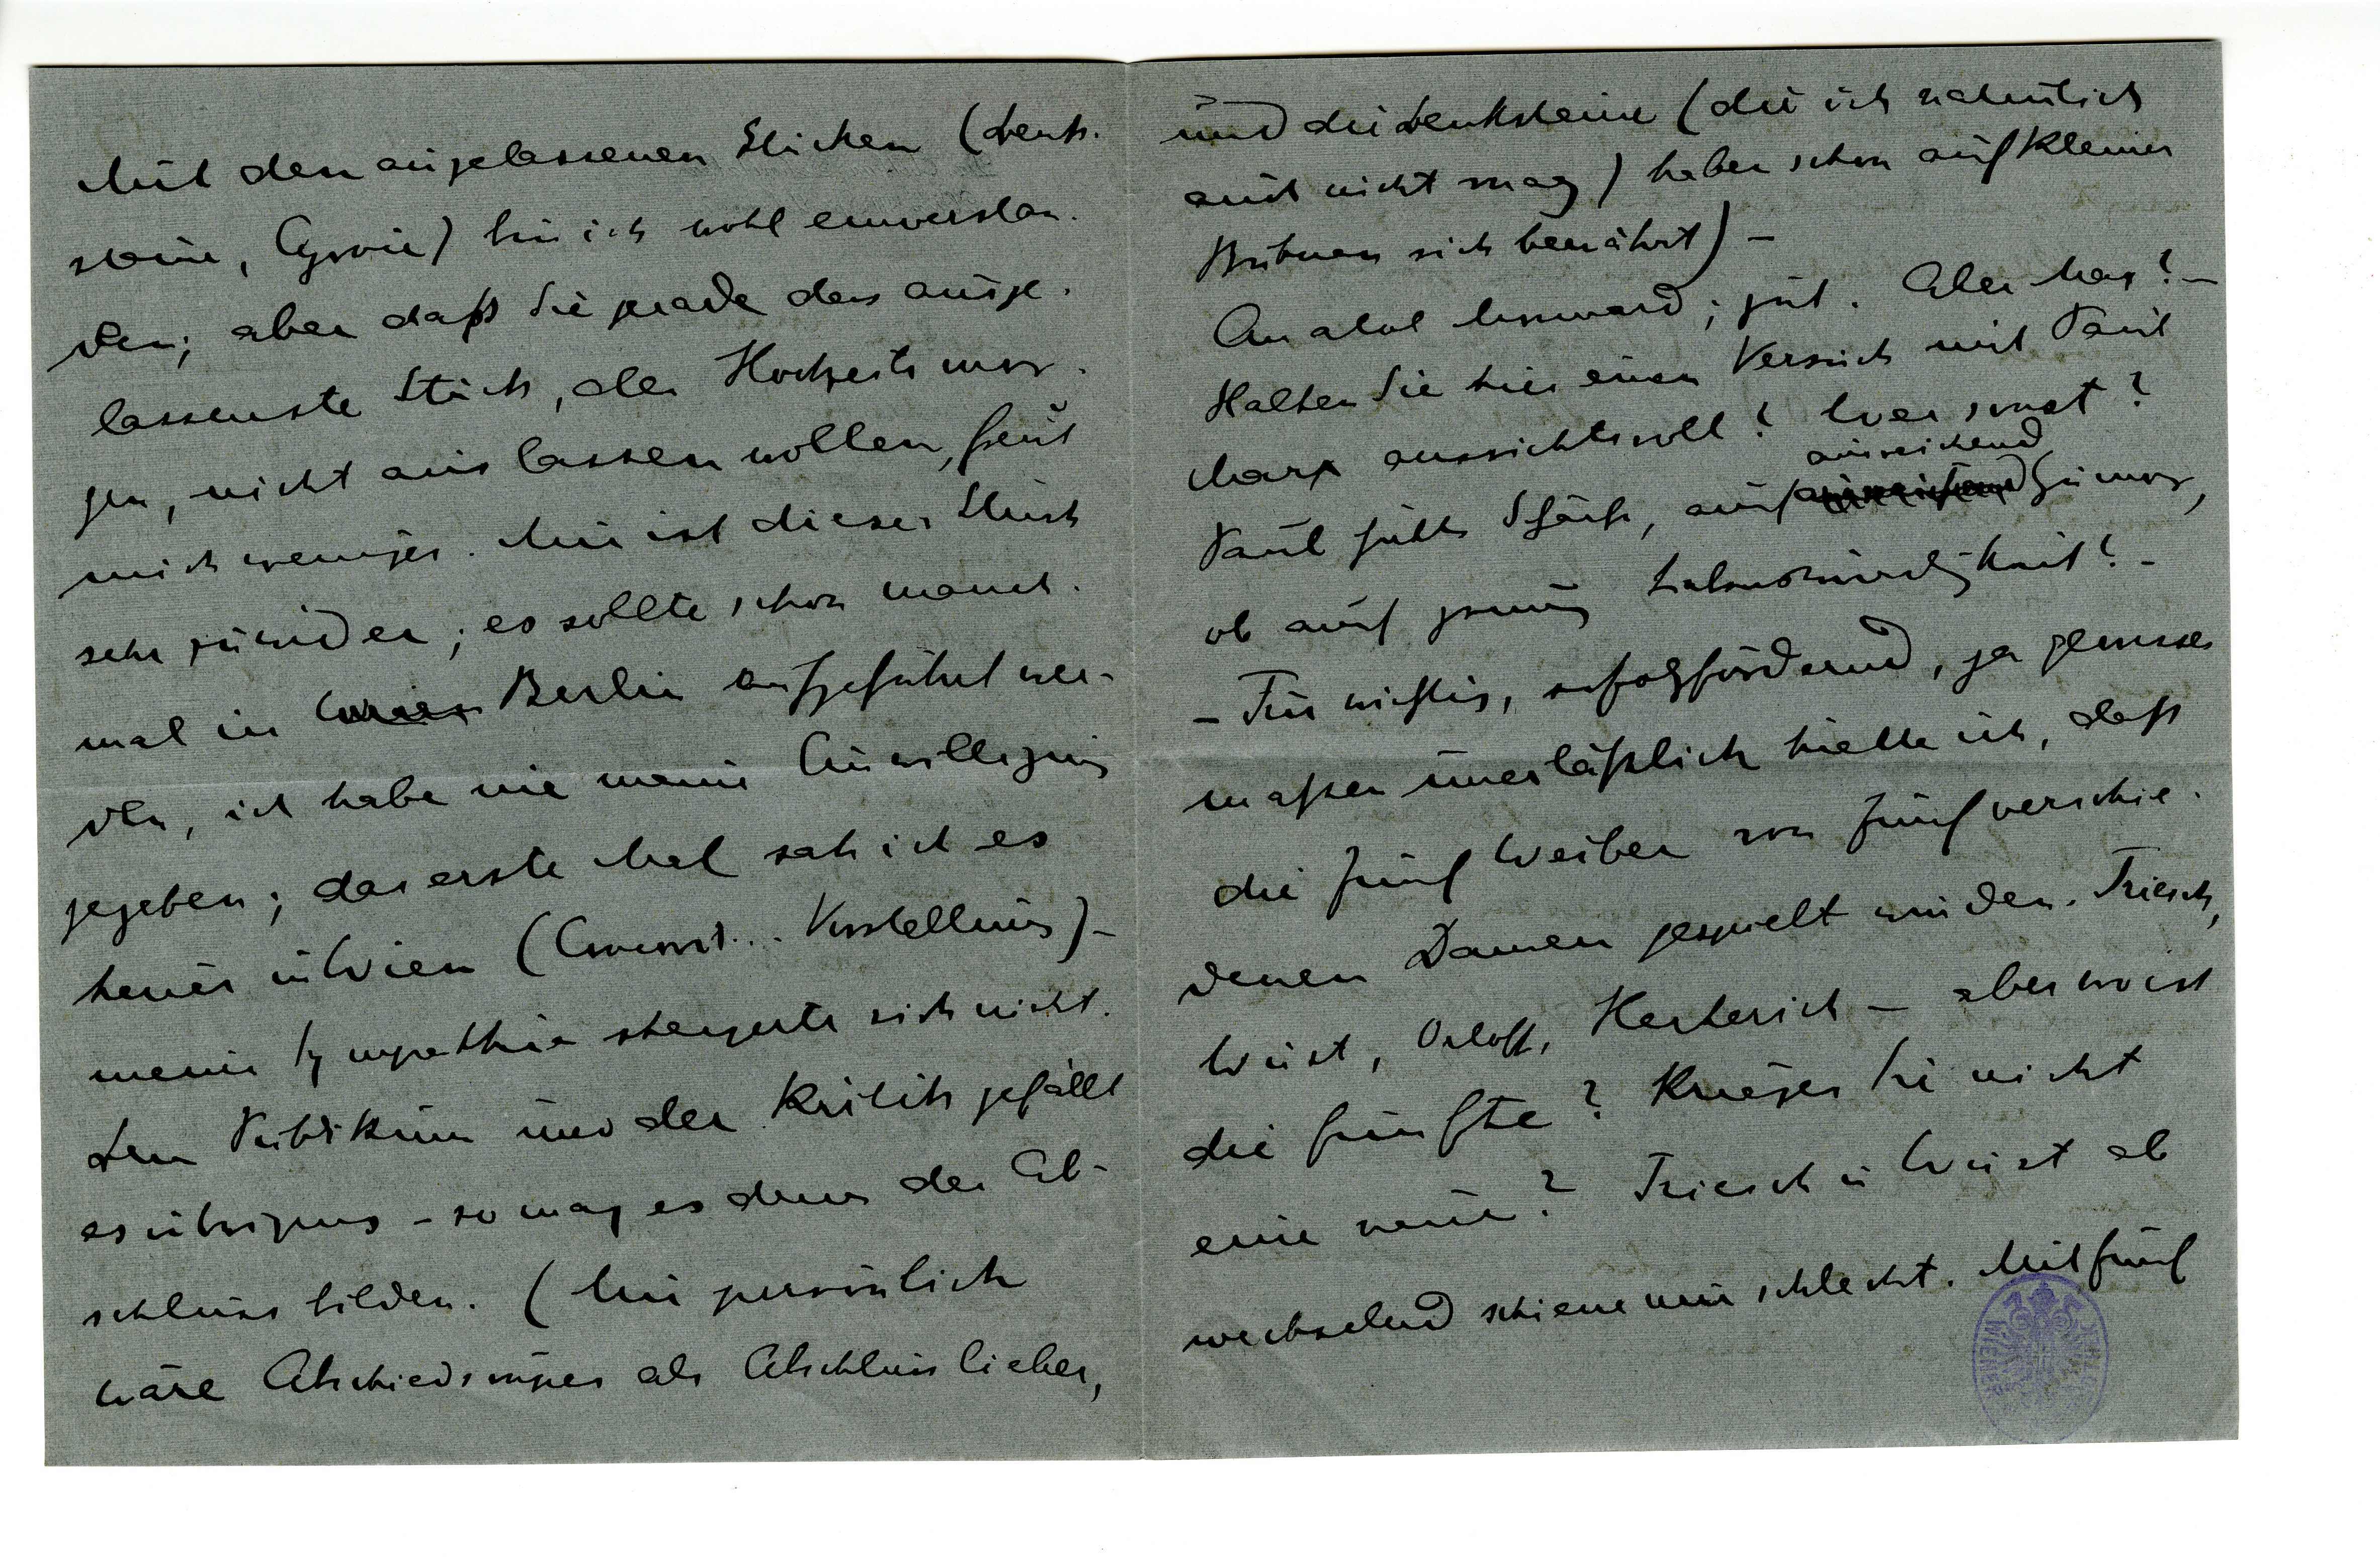 Mit den ausgelassenen Stücken (Denk-
steine, Agonie) bin ich wohl einverstan-
den; aber daß Sie gerade das ausge-
lassenste Stück, den Hochzeitsmor-
gen, nicht auslassen wollen, freut
mich weniger. Mir ist dieses Stück
sehr zuwider; es sollte schon manch-
mal in Wien Berlin aufgeführt wer-
den, ich habe nie meine Einwilligung
gegeben; das erste Mal sah ich es
heuer in Wien ( Vorstellung) –
meine Sympathie steigerte sich nicht.
Dem Publikum und der Kritik gefällt
es übrigens – so mag es denn den Ab-
schluss bilden. (Mir persönlich
wäre Abschiedssouper als Abschluss lieber,
und die Denksteine (die ich natürlich
auch nicht mag) haben schon auf kleinen
Bühnen sich bewährt) –
Anatol Monnard; gut. Aber Max? –
Halten Sie hier einen Versuch mit Paul
Marx aussichtsvoll? Wer sonst?
Paul hätte Schärfe, auch ausreichend Humor,
ob auch genug Liebenswürdigkeit? –
– Für wichtig, erfolgfördernd, ja gewisser
maßen unerläßlich hielte ich, daß
die fünf Weiber von fünf verschie-
denen Damen gespielt würden. Triesch,
Wüst, Orloff, Herterich – aber wo ist
die fünfte? Kriegen Sie nicht
eine neue? Triesch u Wüst ab
wechselnd schiene mir schlecht. Mit fünf